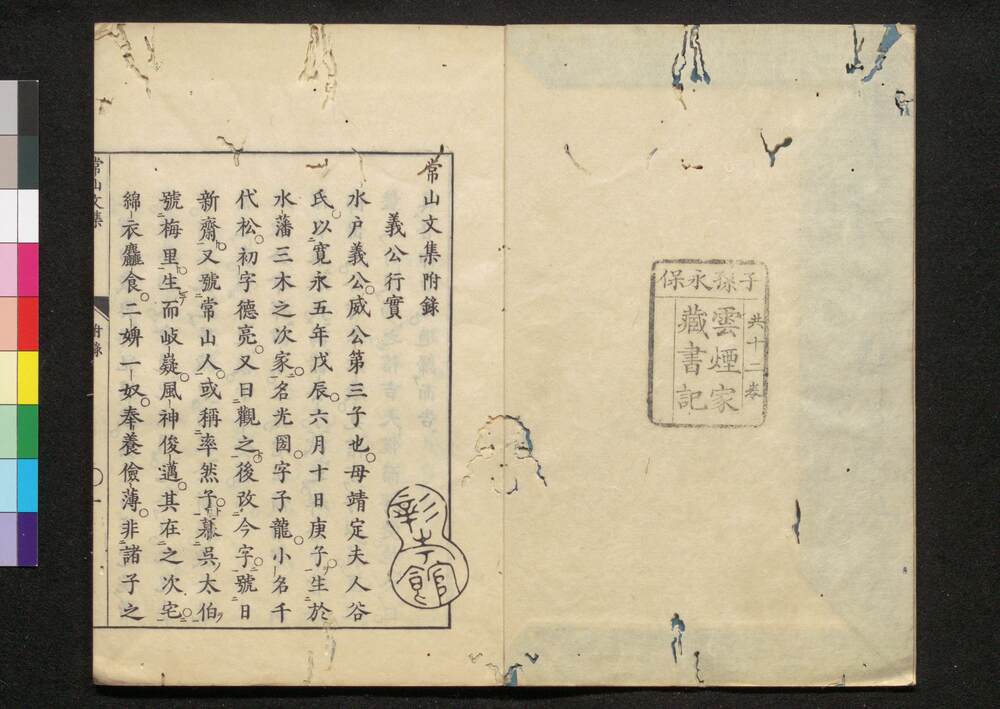 子孫永保
共十二卷
雲煙家
藏書記
常山文集附錄
義公行實
水戶義公。威公第三子也。母靖定夫人谷
氏。以寬永五年戊辰。六月十日庚子。生於
水藩三木之次家。名光圀。字子龍。小名千
代松。初字德亮。又曰觀之。後改今字。號日
新齋。又號常山人。或稱率然子。慕吳太伯
號梅里。生而岐嶷。風神俊邁。其在之次宅。
綿衣麤食。二婢一奴。奉養儉薄。非諸子之
彰考館
常山文集
附錄
一